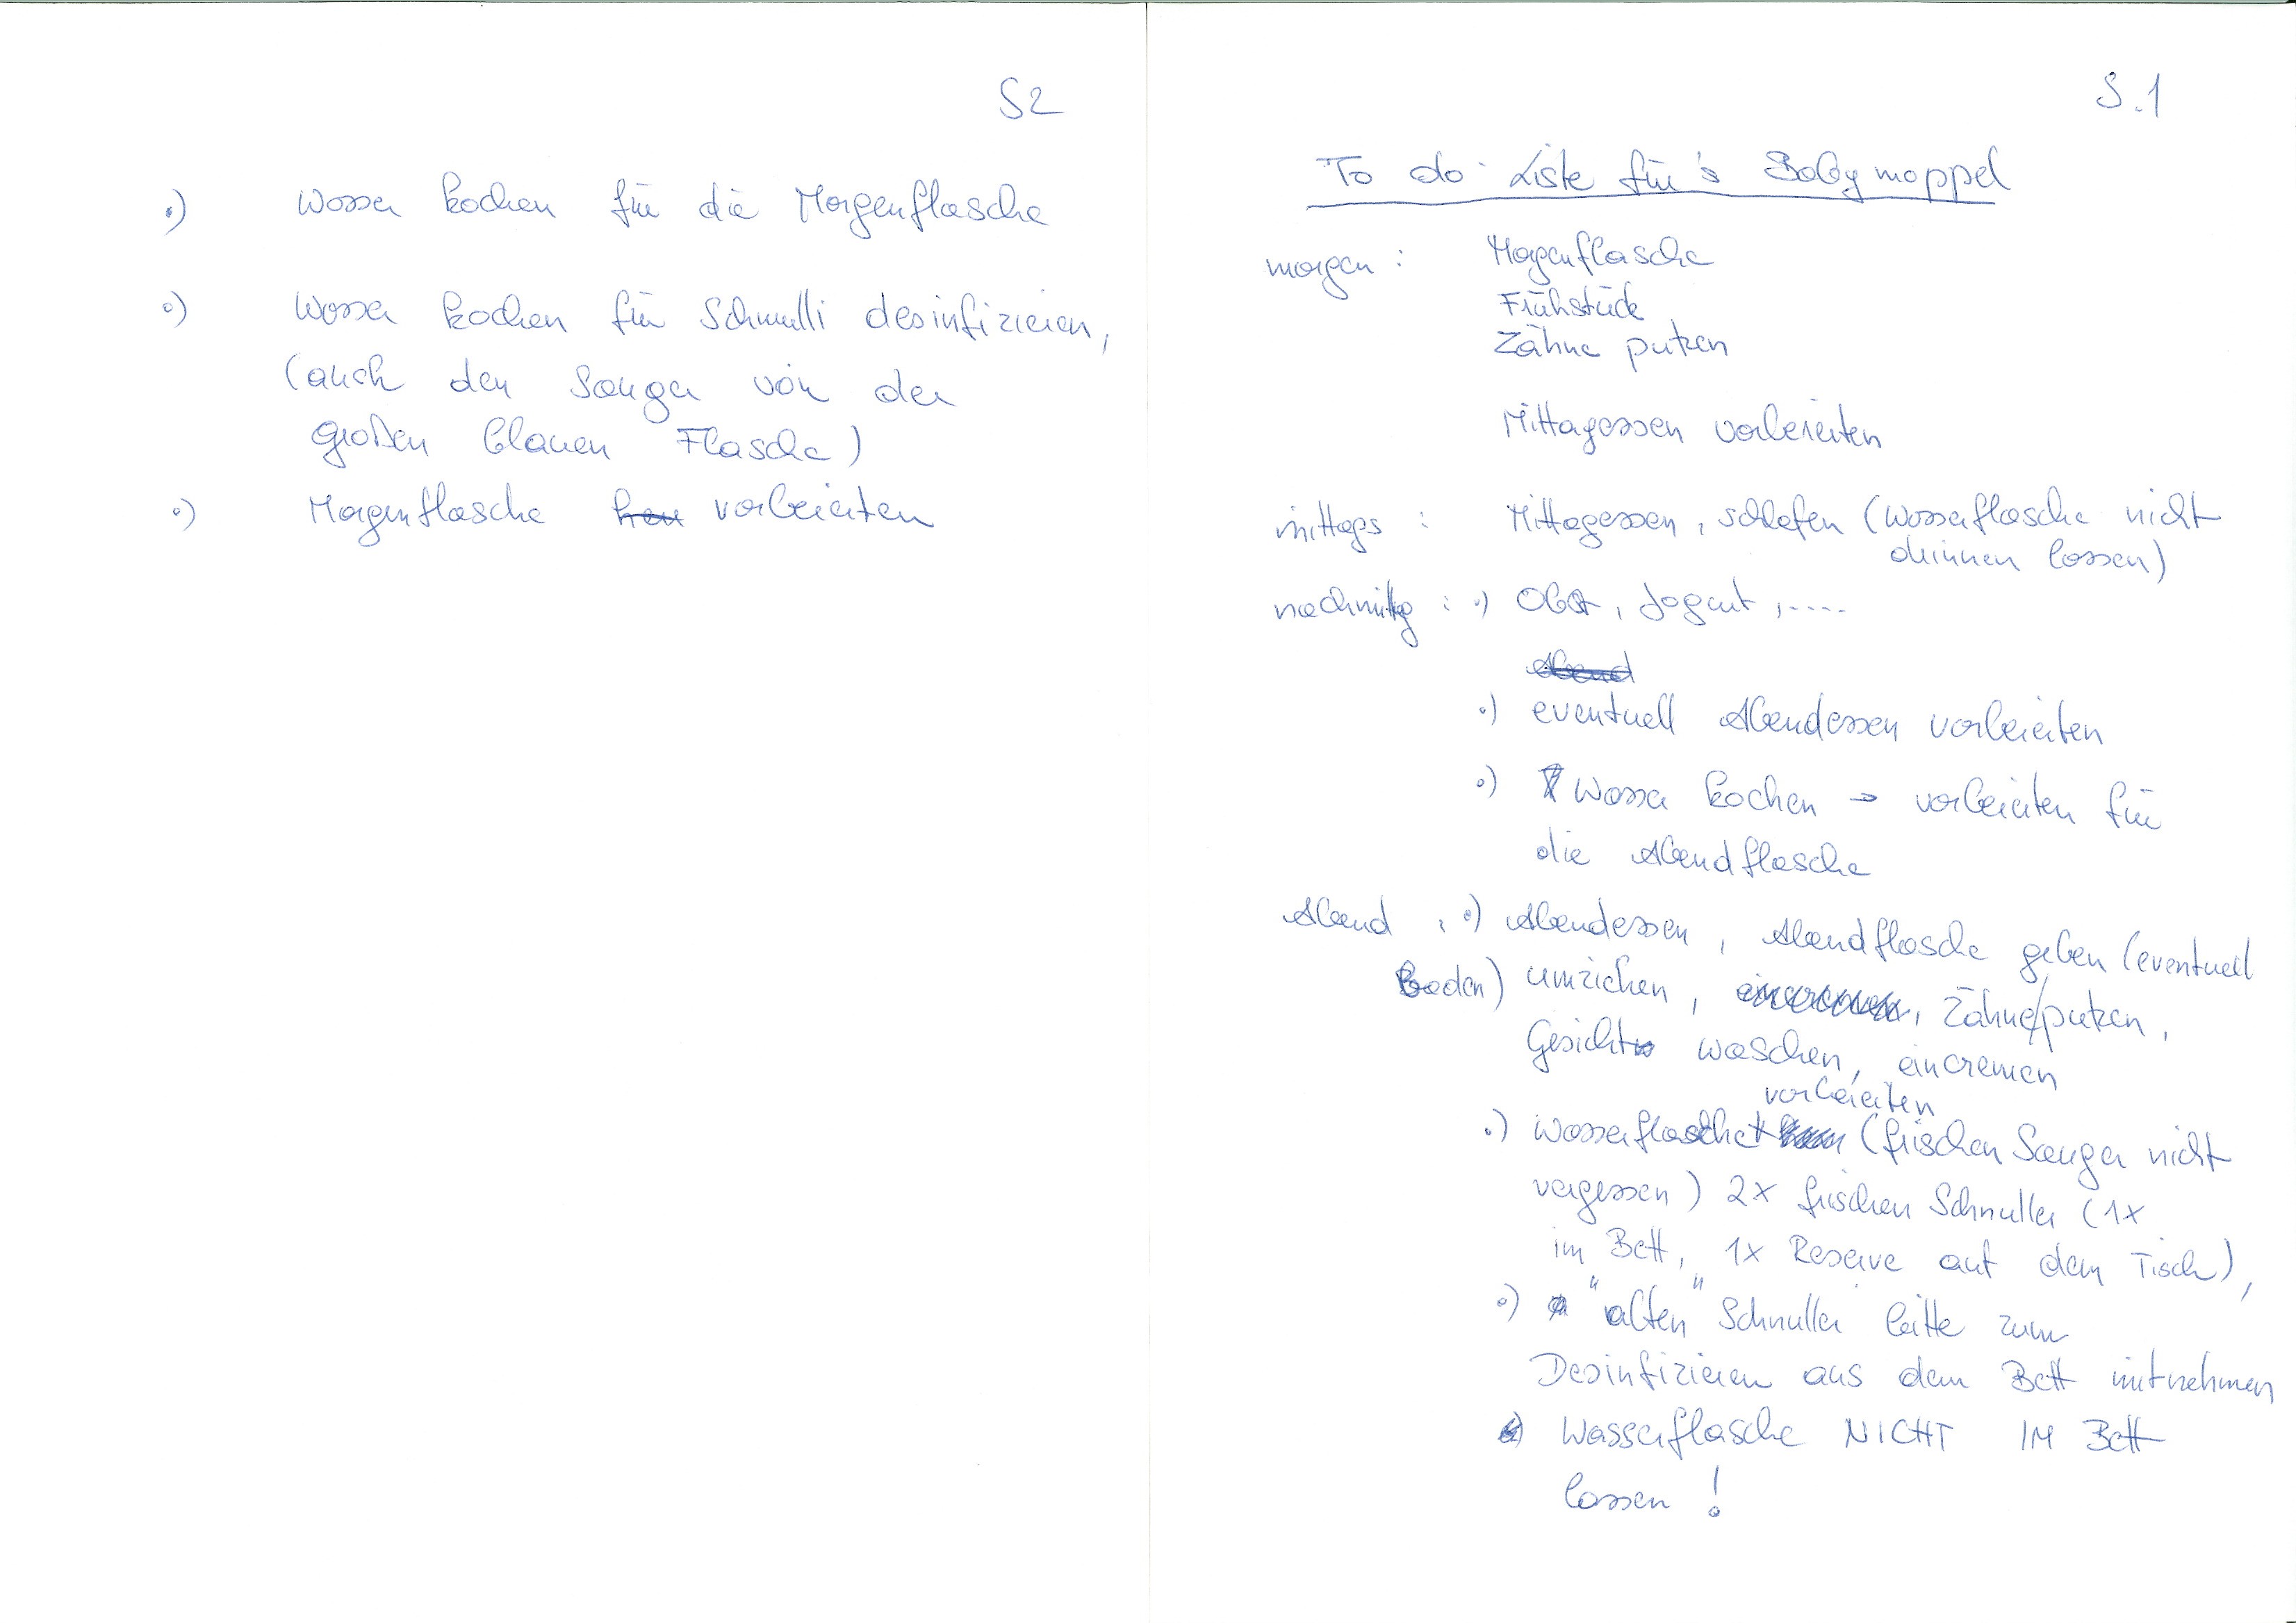 S.1
To do Liste für's Babymoppel
morgen : Morgenflasche
Frühstück
Zähne putzen
Mittagessen vorbereiten
mittags : Mittagessen, schlafen (Wasserflasche nicht
drinnen lassen)
nachmittag : •) Obst, Jogurt, .....
Abend
•) eventuell Abendessen vorbereiten
•) Wasser kochen → vorbereiten für
die Abendflasche
Abend : •) Abendessen, Abendflasche geben (eventuell
baden) umziehen, eincremen, Zähne/putzen,
Gesicht waschen, eincremen
vorbereiten
•) Wasserflasche (frischen Sauger nicht
vergessen) 2x frischen Schnuller (1x
im Bett, 1x Reserve auf dem Tisch),
•) "alten" Schnuller bitte zum
Desinfizieren aus dem Bett mitnehmen
•) Wasserflasche NICHT IM Bett
lassen !
S2
•) Wasser kochen für die Morgenflasche
•) Wasser kochen für Schnulli desinfizieren,
(auch den Sauger von der
großen blauen Flasche)
•) Morgenflasche vorbereiten